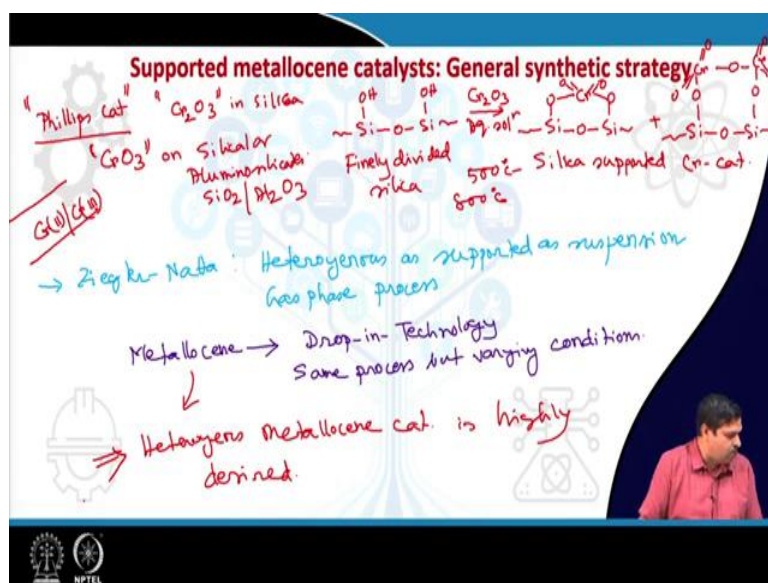 Supported metallocene catalysts: General synthetic strategy
"Phillips Cat" "Cr2O3" in silica
"CrO3" on Silica or
Aluminosilicates
SiO2/Al2O3
Cr(II)/Cr(III)
OH OH
~Si-O-Si~
Finely divided
silica
Cr2O3
Aq. soln
500°C-
800°C
O O
Cr
O O
~Si-O-Si~
+
O O
Cr-O-Cr
O O
~Si-O-Si
Silica supported Cr-cat.
→ Ziegler-Natta: Heterogenous as supported as suspension
Gas phase process
Metallocene → Drop-in-Technology
Same process but varying condition.
⇒ Heterogens metallocene cat. is highly
desired.
NPTEL